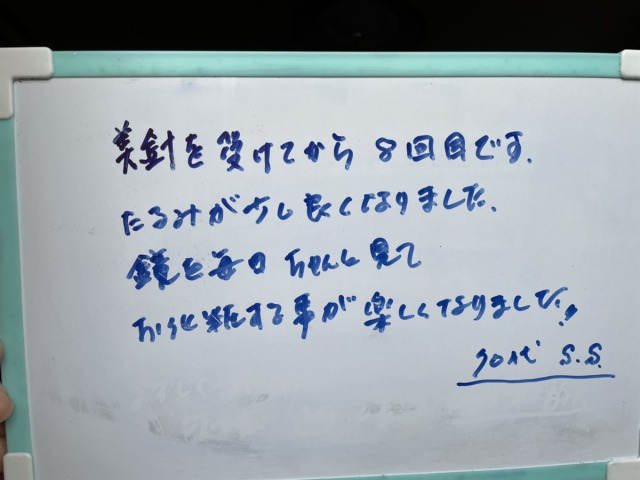 美針を受けてから 8回目です。
たるみが少し良くなりました。
鏡を毎日 ちゃんと見て
お化粧する事が楽しくなりました!
S.S.